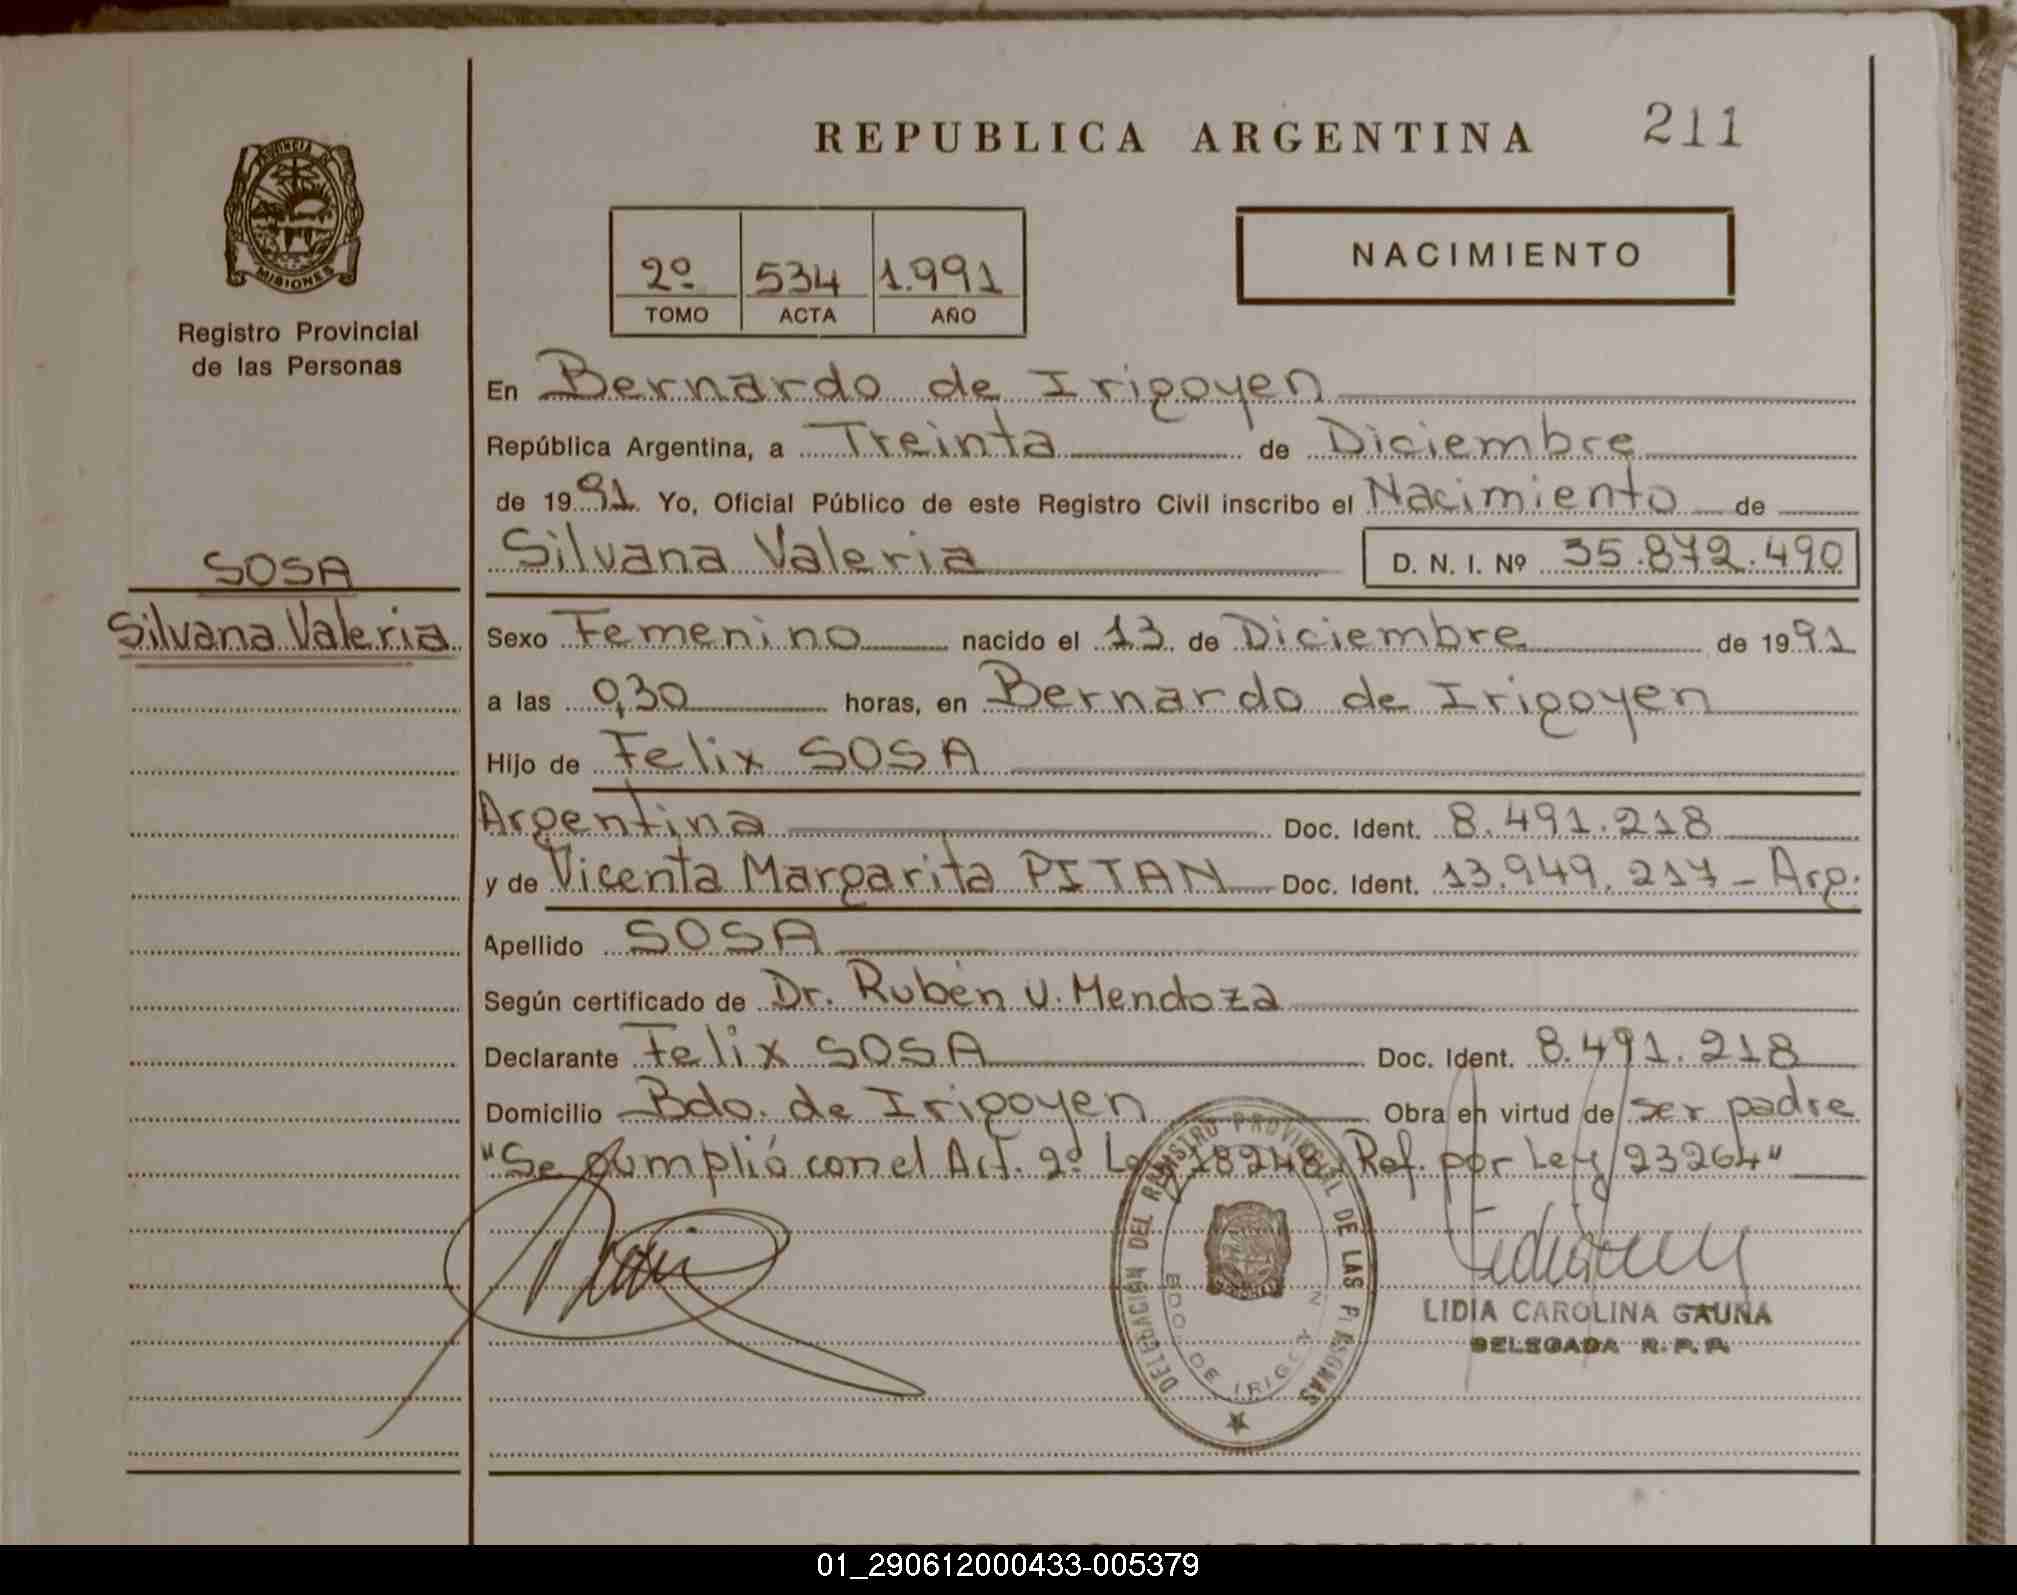 REPUBLICA ARGENTINA 211
PROVINCIA DE
MISIONES
Registro Provincial
de las Personas
NACIMIENTO
2º 534 1.991
TOMO ACTA AÑO
En Bernardo de Irigoyen
República Argentina, a Treinta de Diciembre
de 1991 Yo, Oficial Público de este Registro Civil inscribo el Nacimiento de
Silvana Valeria D. N. I. Nº 35.872.490
SOSA
Silvana Valeria
Sexo Femenino nacido el 13 de Diciembre de 1991
a las 0,30 horas, en Bernardo de Irigoyen
Hijo de Felix SOSA
Argentina Doc. Ident. 8.491.218
y de Vicenta Margarita PITAN Doc. Ident. 13.949.217 - Arg.
Apellido SOSA
Según certificado de Dr. Rubén V. Mendoza
Declarante Felix SOSA Doc. Ident. 8.491.218
Domicilio Bdo. de Irigoyen Obra en virtud de ser padre
"Se cumplió con el Art. 2º Ley 18248 Ref. por Ley 23264"
DELEGACIÓN DEL REGISTRO PROVINCIAL DE LAS PERSONAS
BDO. DE IRIGOYEN
LIDIA CAROLINA GAUNA
DELEGADA R.P.P.
01_290612000433-005379